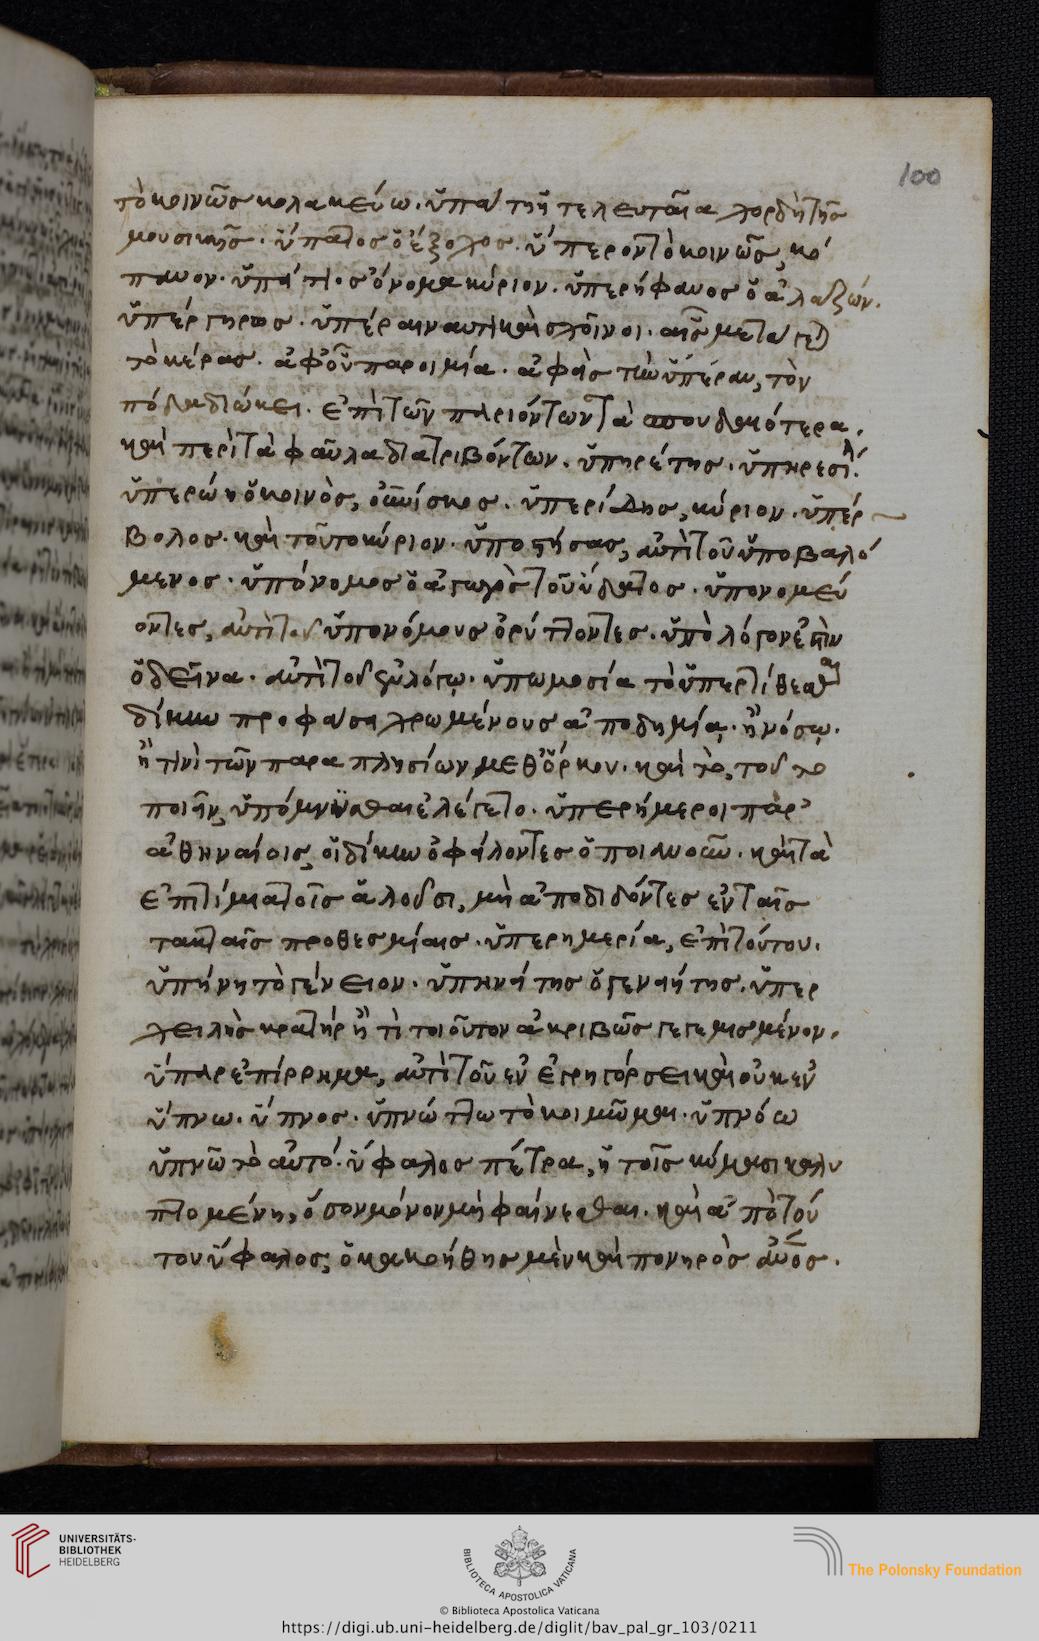 100
τὸ κοινῶς κολακεύω· ὑπάτη ἡ τελευταία χορδὴ τῆς
μουσικῆς· ὕπατος ὁ ἔξοχος· ὕπερον τὸ κοινῶς, κό
πανον· ὑπάτιος ὄνομα κύριον· ὑπερήφανος ὁ ἀλαζών·
ὑπέργηρως· ὑπέραι ναυτικαὶ σχοῖνοι·
τὸ κέρας· ἀφ' οὗ παροιμία· ἀφεὶς τὴν ὑπέραν, τὸν
πόδα διώκει· ἐπὶ τῶν παριόντων τὰ σπουδαιότερα,
καὶ περὶ τὰ φαῦλα διατριβόντων· ὑπηρέτης· ὑπηρεσί
ὑπερώη ὁ κοινὸς, οὐρανίσκος· ὑπερίδης, κύριον· ὑπέρ
βολος· καὶ τοῦτο κύριον· ὑποστήσας, ἀντὶ τοῦ ὑποβαλό
μενος· ὑπόνομος ὁ ἀγωγὸς τοῦ ὕδατος· ὑπονομεύ
οντες, ἀντὶ τοῦ ὑπονόμους ὀρύττοντες· ὑπὸ λόγον ἐστὶν
ὁ δεῖνα· ἀντὶ τοῦ εὐλόγῳ· ὑπωμοσία τὸ ὑπερτίθεσθαι
δίκην προφάσει χρωμένους ἀποδημίᾳ· ἢ νόσῳ·
ἤ τινι τῶν παραπλησίων μεθ' ὅρκου· καὶ τὸ, τοῦτο
ποιεῖν, ὑπόμνυσθαι ἐλέγετο· ὑπερήμεροι παρ'
ἀθηναίοις, οἱ δίκην ὀφείλοντες ὁποιανοῦν· καὶ τὰ
ἐπιτίμια τοῖς ἁλοῦσι, μὴ ἀποδιδόντες ἐν ταῖς
τακταῖς προθεσμίαις· ὑπερημερία, ἐπὶ τούτου·
ὑπήνη τὸ γένειον· ὑπηνήτης ὁ γενειήτης· ὑπερ
χειλὴς κρατὴρ ἤ τι τοιοῦτον ἀκριβῶς γεγεμισμένον·
ὕπαρ ἐπίρρημα, ἀντὶ τοῦ ἐν ἐγρηγόρσει καὶ οὐκ ἐν
ὕπνω· ὕπνος· ὑπνώττω τὸ κοιμῶμαι· ὑπνόω
ὑπνῶ τὸ αὐτό· ὕφαλος πέτρα, ἡ τοῖς κύμασι καλυ
πτομένη, ὅσον μόνον μὴ φαίνεσθαι· καὶ ἀπὸ τού
του ὕφαλος, ὁ κακοήθης μὲν καὶ πονηρὸς ἄνος·
UNIVERSITÄTS-
BIBLIOTHEK
HEIDELBERG
BIBLIOTECA APOSTOLICA VATICANA
The Polonsky Foundation
© Biblioteca Apostolica Vaticana
https://digi.ub.uni-heidelberg.de/diglit/bav_pal_gr_103/0211